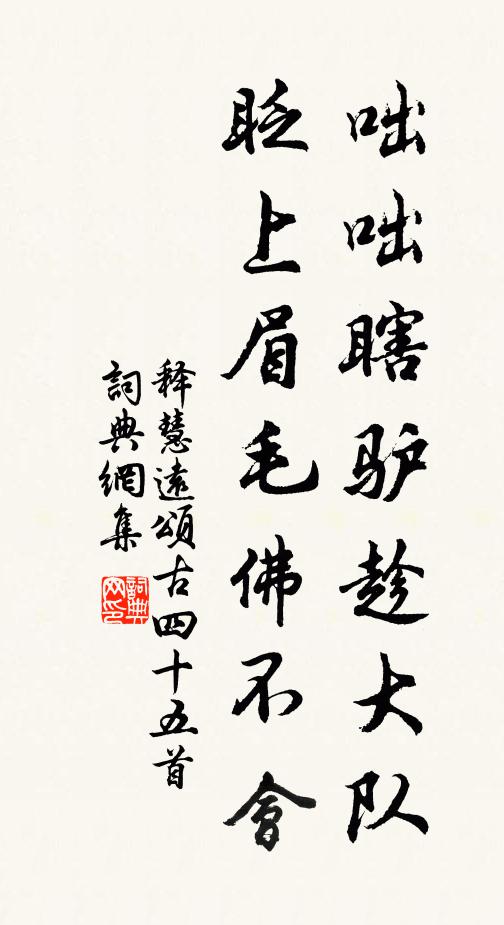 咄咄瞎驴趁大队
眨上眉毛佛不會
释慧遠頌古四十五首
詞典網集
詞典网印